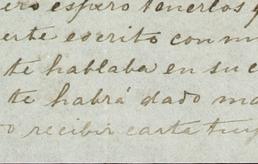 ero espero tenerlos
erte escrito con
te hablaba en su
te habrá dado
recibir carta tuy